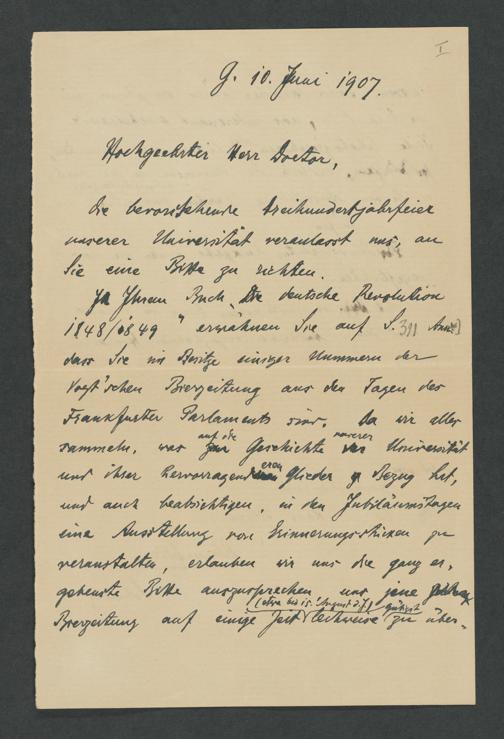 I
G. 10. Juni 1907.
Hochgeehrter Herr Doctor,
die bevorstehende Dreihundertjahrfeier
unserer Universität veranlasst uns, an
Sie eine Bitte zu richten.
In Ihrem Buch „Die deutsche Revolution
1848/1849" erwähnen Sie auf S. 311 Anm.
dass Sie im Besitze einiger Nummern der
Vogt'schen Bierzeitung aus den Tagen des
Frankfurter Parlaments sind. Da wir alles
sammeln, was auf die Geschichte unserer Universität
und ihrer hervorragenderen Glieder Bezug hat,
und auch beabsichtigen, in den Jubiläumstagen
eine Ausstellung von Erinnerungsstücken zu
veranstalten, erlauben wir uns die ganz er-
gebenste Bitte auszusprechen, uns jene
(etwa bis 15. August d. J.) gütigst
Bierzeitung auf einige Zeit leihweise zu über-